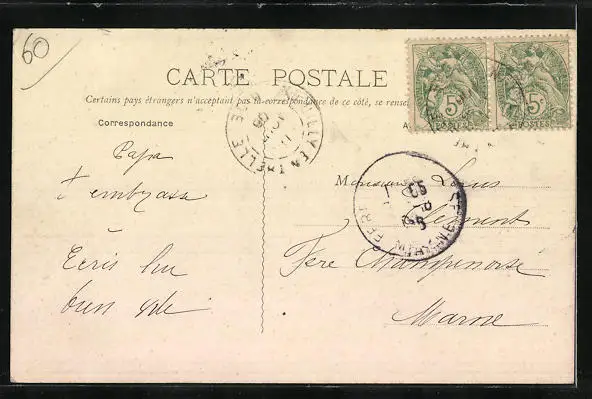 60
CARTE POSTALE
Certains pays étrangers n'acceptant pas la correspondance de ce côté, se rensei
Correspondance
Papa
t'embrasse
à
Ecris lui
bien vite
Monsieur Louis
Clément
Fère Champenoise
Marne
5c
5c
POSTES
MARNE